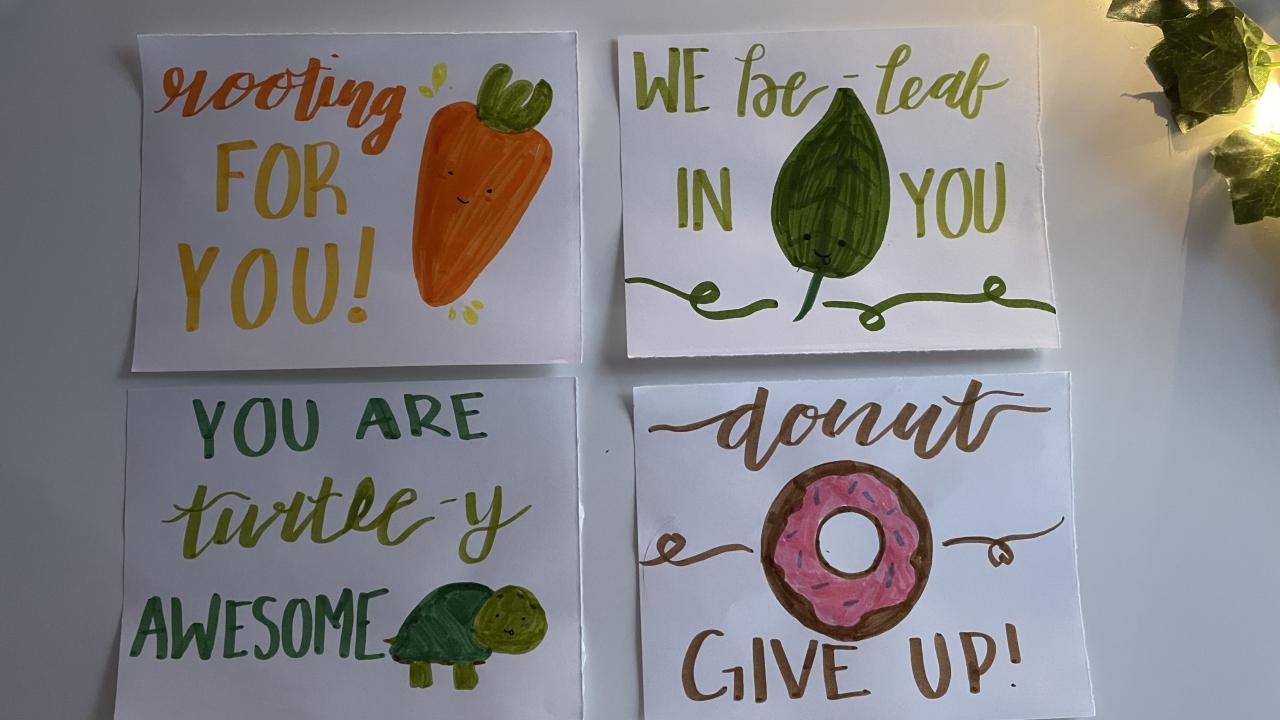 rooting
FOR
YOU!
WE be-leaf
IN YOU
YOU ARE
turtle-y
AWESOME
donut
GIVE UP!